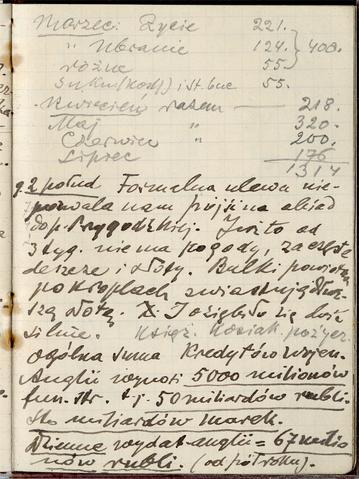 Marzec: Życie 221.
" Ubranie 124. } 400.
różne 55.
i st. buc 55.
Kwiecień razem — 218.
Maj " 320.
Czerwiec " 200.
Lipiec 176
1314
g. 2 połud Formalna ulewa nie-
pozwala nam pójść na obiad
do p. Przygodzkiej. Już to od
3 tyg. nie ma pogody, za częste
deszcze i słoty. Bulki
po kroplach zwiastują dłuż-
szą słotę. I oziębiło się dość
silnie. Księż. Kosiak pożycz.
ogólna suma Kredytów wojen.
Anglii wynosi 5000 milionów
fun. str. t. j. 50 miliardów rubli.
Sto miliardów marek.
Dzienne wydat. anglii = 67 milio
nów rubli. (od pół roku).